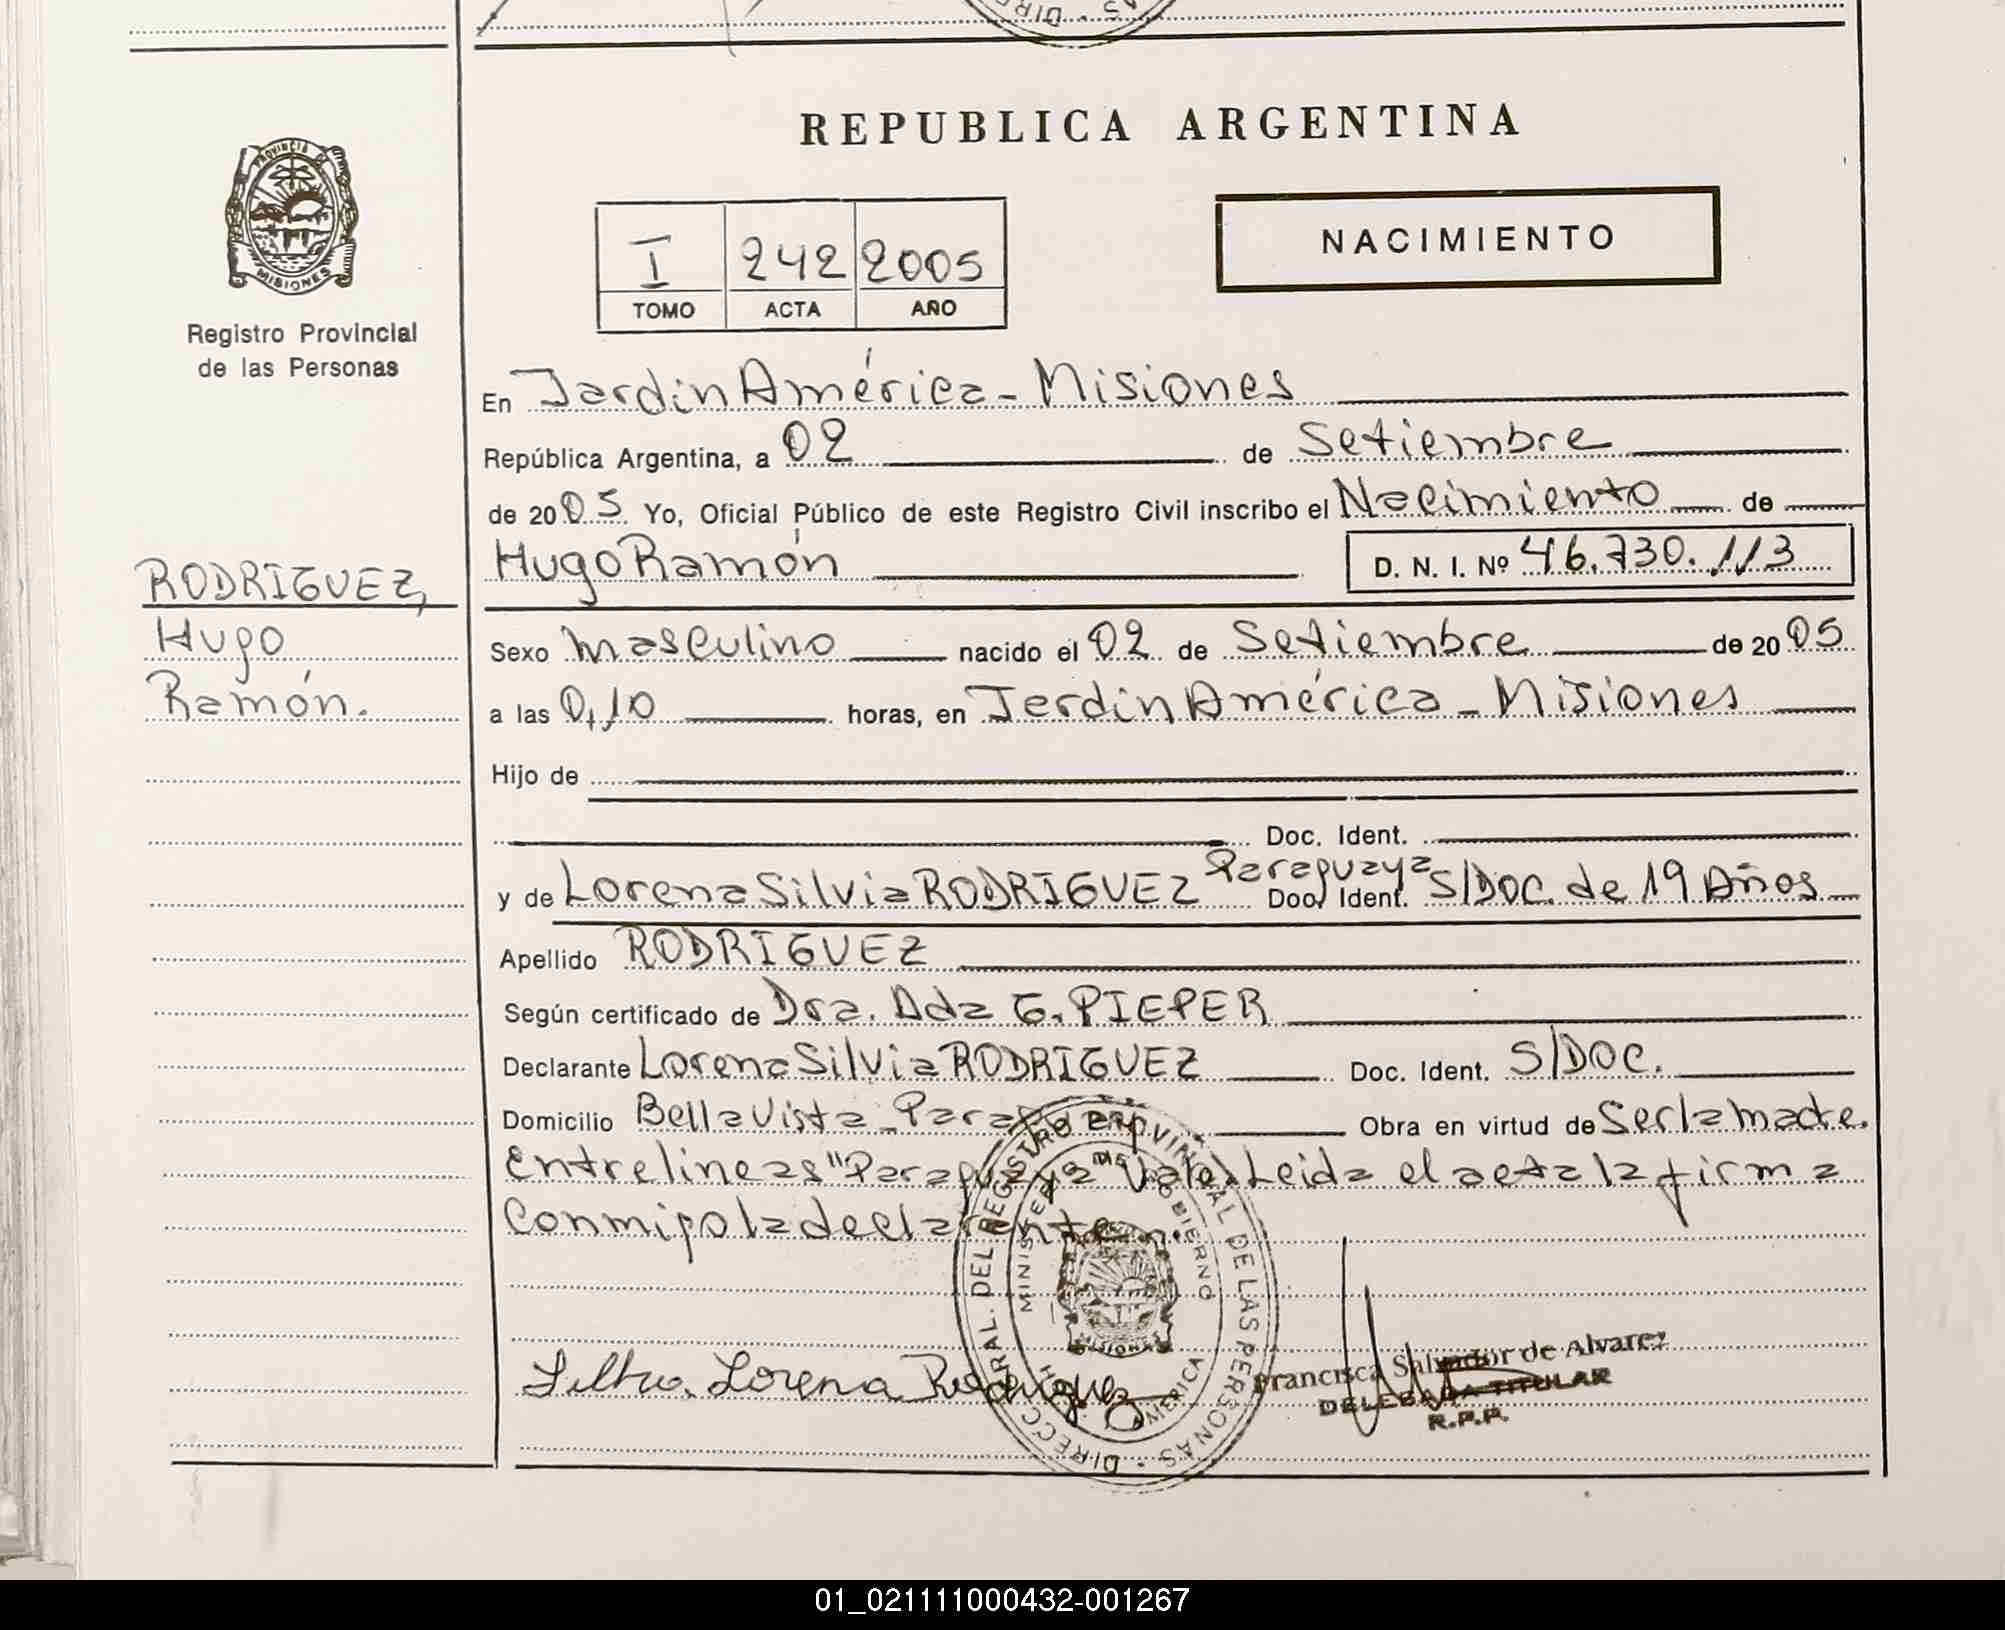 REPUBLICA ARGENTINA
PROVINCIA DE
MISIONES
Registro Provincial
de las Personas
I 242 2005
TOMO ACTA AÑO
NACIMIENTO
En Jardin América - Misiones
República Argentina, a 02 de Setiembre
de 2005 Yo, Oficial Público de este Registro Civil inscribo el Nacimiento de
Hugo Ramón D. N. I. Nº 46.730.113
RODRIGUEZ,
Hugo
Ramón.
Sexo masculino nacido el 02 de Setiembre de 2005
a las 0,10 horas, en Jardin América - Misiones
Hijo de
Doc. Ident.
y de Lorena Silvia RODRIGUEZ Paraguaya Doc. Ident. S/DOC. de 19 Años
Apellido RODRIGUEZ
Según certificado de Dra. Ada G. PIEPER
Declarante Lorena Silvia RODRIGUEZ Doc. Ident. S/DOC.
Domicilio Bella Vista - Obra en virtud de Ser la madre.
Entrelineas "Paraguaya" Vale. Leida el acta la firma
Conmigo la declarante.
DIRECC. GRAL. DEL REGISTRO PROVINCIAL DE LAS PERSONAS
MINISTERIO DE GOBIERNO
MISIONES
AMERICA
Lorena Rodriguez
Francisca Salvador de Alvarez
DELEGADA TITULAR
R.P.P.
01_021111000432-001267